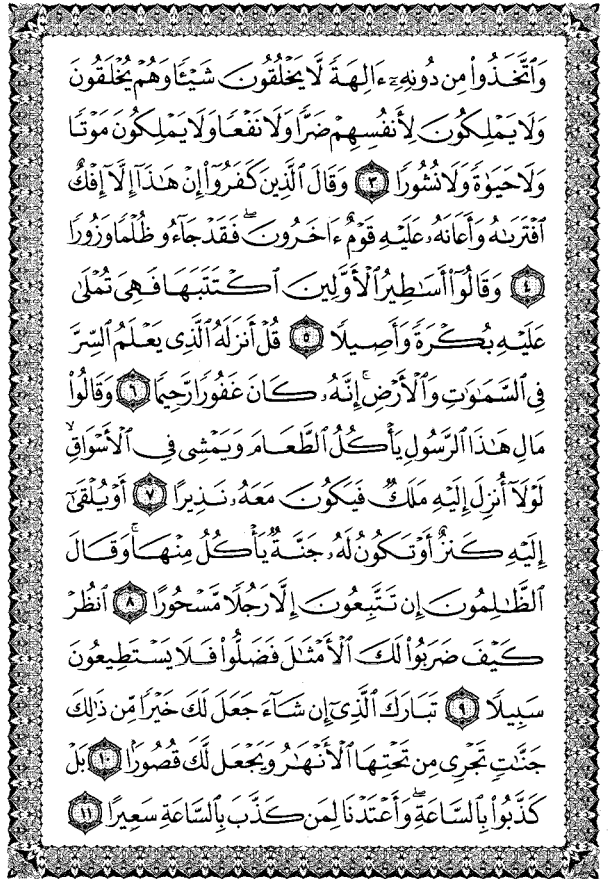 وَٱتَّخَذُوا۟ مِن دُونِهِۦٓ ءَالِهَةً لَّا يَخْلُقُونَ شَيْـًٔا وَهُمْ يُخْلَقُونَ
وَلَا يَمْلِكُونَ لِأَنفُسِهِمْ ضَرًّا وَلَا نَفْعًا وَلَا يَمْلِكُونَ مَوْتًا
وَلَا حَيَوٰةً وَلَا نُشُورًا ٣ وَقَالَ ٱلَّذِينَ كَفَرُوٓا۟ إِنْ هَـٰذَآ إِلَّآ إِفْكٌ
ٱفْتَرَىٰهُ وَأَعَانَهُۥ عَلَيْهِ قَوْمٌ ءَاخَرُونَ ۖ فَقَدْ جَآءُو ظُلْمًا وَزُورًا
٤ وَقَالُوٓا۟ أَسَـٰطِيرُ ٱلْأَوَّلِينَ ٱكْتَتَبَهَا فَهِىَ تُمْلَىٰ
عَلَيْهِ بُكْرَةً وَأَصِيلًا ٥ قُلْ أَنزَلَهُ ٱلَّذِى يَعْلَمُ ٱلسِّرَّ
فِى ٱلسَّمَـٰوَٰتِ وَٱلْأَرْضِ ۚ إِنَّهُۥ كَانَ غَفُورًا رَّحِيمًا ٦ وَقَالُوا۟
مَالِ هَـٰذَا ٱلرَّسُولِ يَأْكُلُ ٱلطَّعَامَ وَيَمْشِى فِى ٱلْأَسْوَاقِ ۙ
لَوْلَآ أُنزِلَ إِلَيْهِ مَلَكٌ فَيَكُونَ مَعَهُۥ نَذِيرًا ٧ أَوْ يُلْقَىٰٓ
إِلَيْهِ كَنزٌ أَوْ تَكُونُ لَهُۥ جَنَّةٌ يَأْكُلُ مِنْهَا ۚ وَقَالَ
ٱلظَّـٰلِمُونَ إِن تَتَّبِعُونَ إِلَّا رَجُلًا مَّسْحُورًا ٨ ٱنظُرْ
كَيْفَ ضَرَبُوا۟ لَكَ ٱلْأَمْثَـٰلَ فَضَلُّوا۟ فَلَا يَسْتَطِيعُونَ
سَبِيلًا ٩ تَبَارَكَ ٱلَّذِىٓ إِن شَآءَ جَعَلَ لَكَ خَيْرًا مِّن ذَٰلِكَ
جَنَّـٰتٍ تَجْرِى مِن تَحْتِهَا ٱلْأَنْهَـٰرُ وَيَجْعَل لَّكَ قُصُورًۢا ١٠ بَلْ
كَذَّبُوا۟ بِٱلسَّاعَةِ ۖ وَأَعْتَدْنَا لِمَن كَذَّبَ بِٱلسَّاعَةِ سَعِيرًا ١١